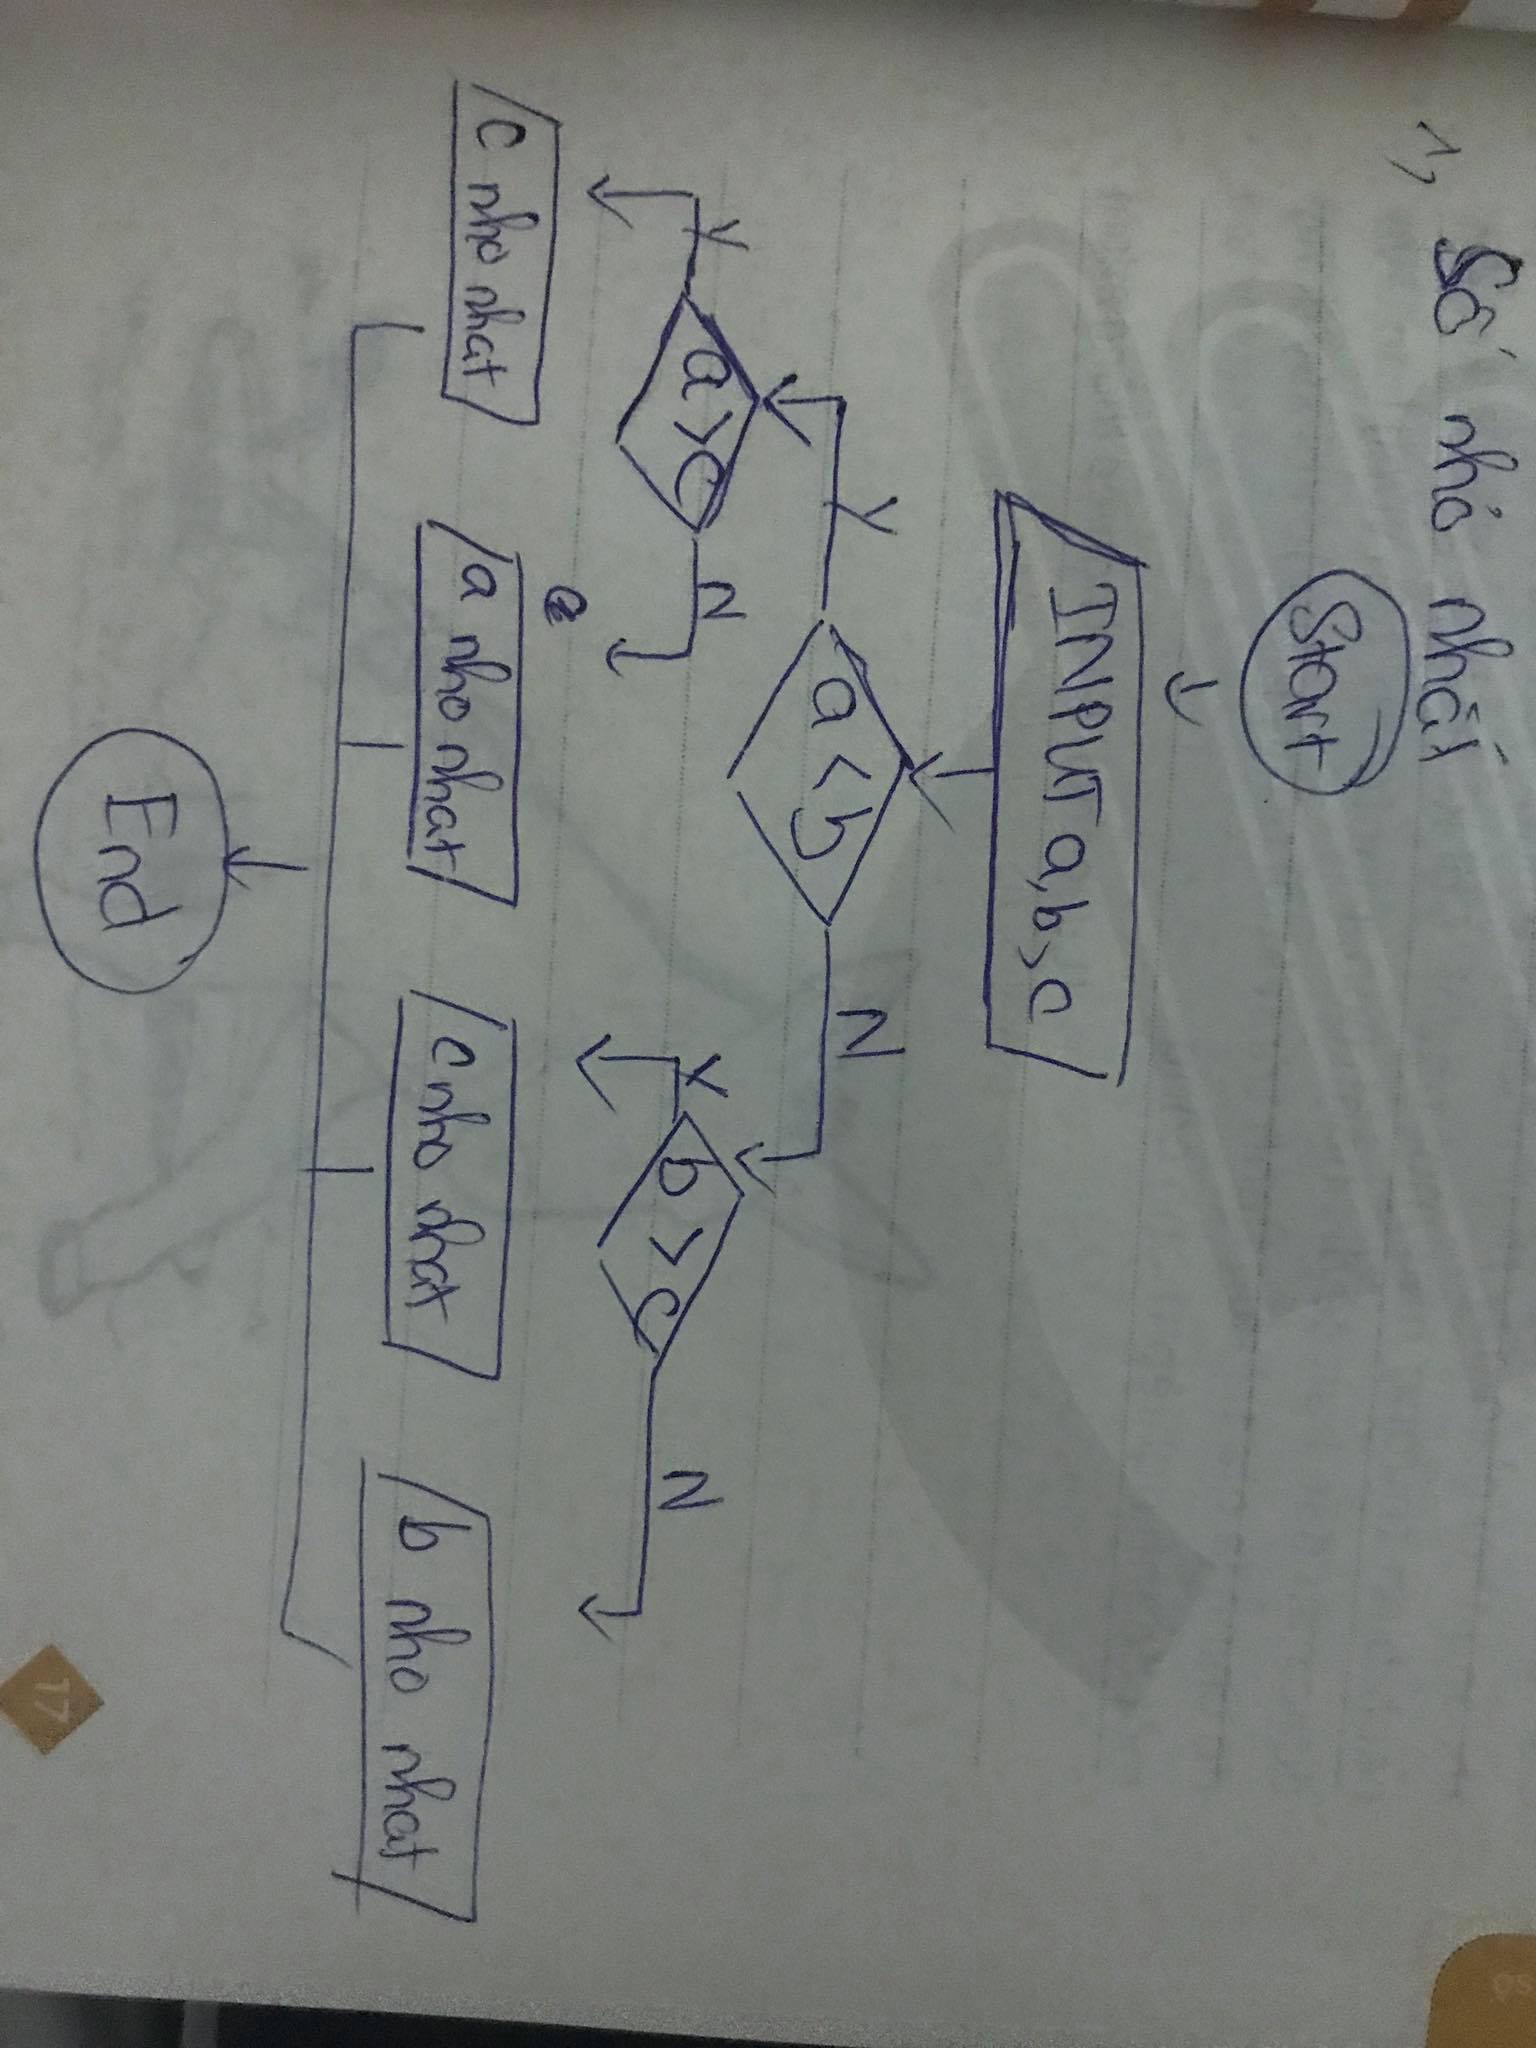 1, Số nhỏ nhất
Start
INPUT a, b, c
a < b
Y
N
a > c
Y
N
b > c
Y
N
c nho nhat
a nho nhat
c nho nhat
b nho nhat
End
17